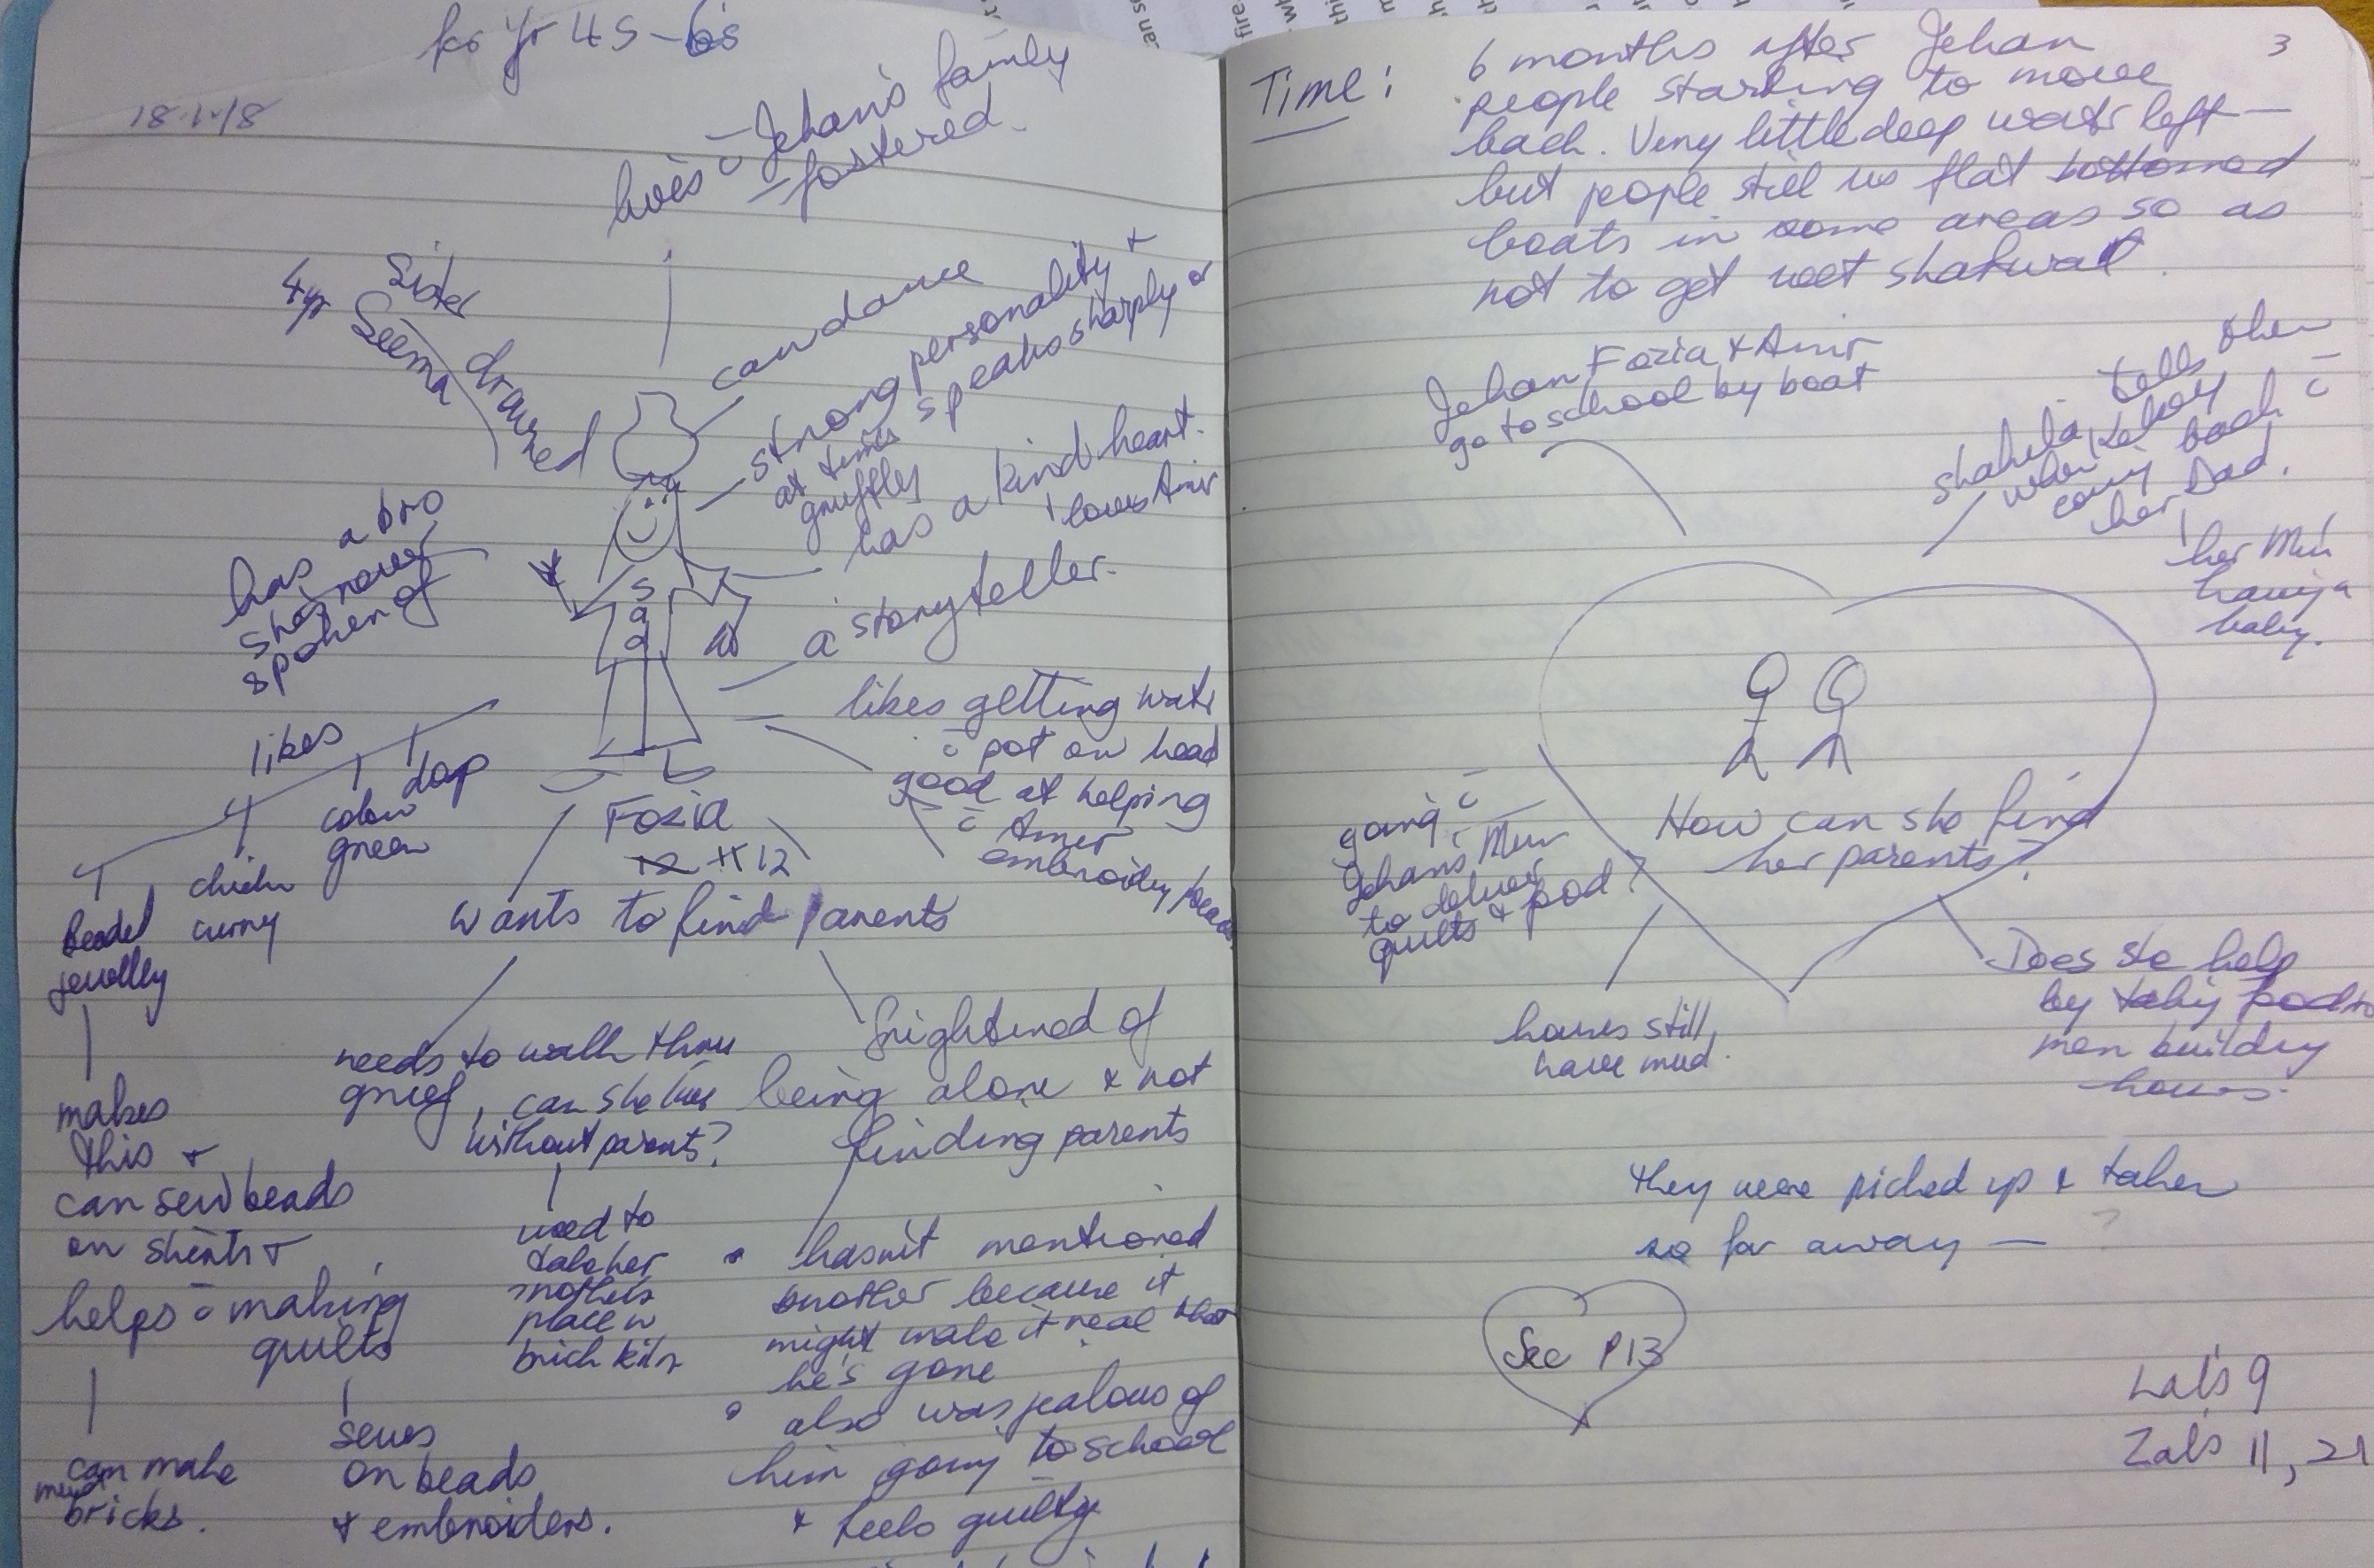 for Yr 4S-6s
18.1.18
lives c̄ Jehan's family
- fostered.
4yr
Sister
Seema
drowned
can dance
strong personality +
at times speaks sharply or
gruffly
has a kind heart.
+ loves Amir
a storyteller.
has a bro
she never
spoken of
Sad
likes getting water
c̄ pot on head
good at helping
c̄ Amir
embroidery/beads
likes
dog
colour
green
chicken
curry
Beaded
jewelley
Fozia
12 11 12
wants to find parents
needs to walk thru
grief, can she live
without parents?
frightened of
being alone & not
finding parents
makes
this +
can sew beads
on shirts +
helps c̄ making
quilts
can make
mud
bricks.
sews
on beads
& embroiders.
used to
take her
mother's
place in
brick kiln
• hasn't mentioned
brother because it
might make it real that
he's gone
• also was jealous of
him going to school
& feels guilty
3
Time:
6 months after Jehan
people starting to move
back. Very little deep water left -
but people still us flat bottomed
boats in some areas so as
not to get wet shalwar.
Jehan Fozia & Amir
go to school by boat
Shakila tells them
when
coming back c̄
her Dad.
her Mum
having a
baby.
How can she find
her parents?
going c̄
Jehan's Mum
to deliver
quilts & food?
houses still
have mud.
Does she help
by taking food to
men building
houses.
they were picked up & taken
so far away — ?
See P13
Lal's 9
Zal's 11, 21